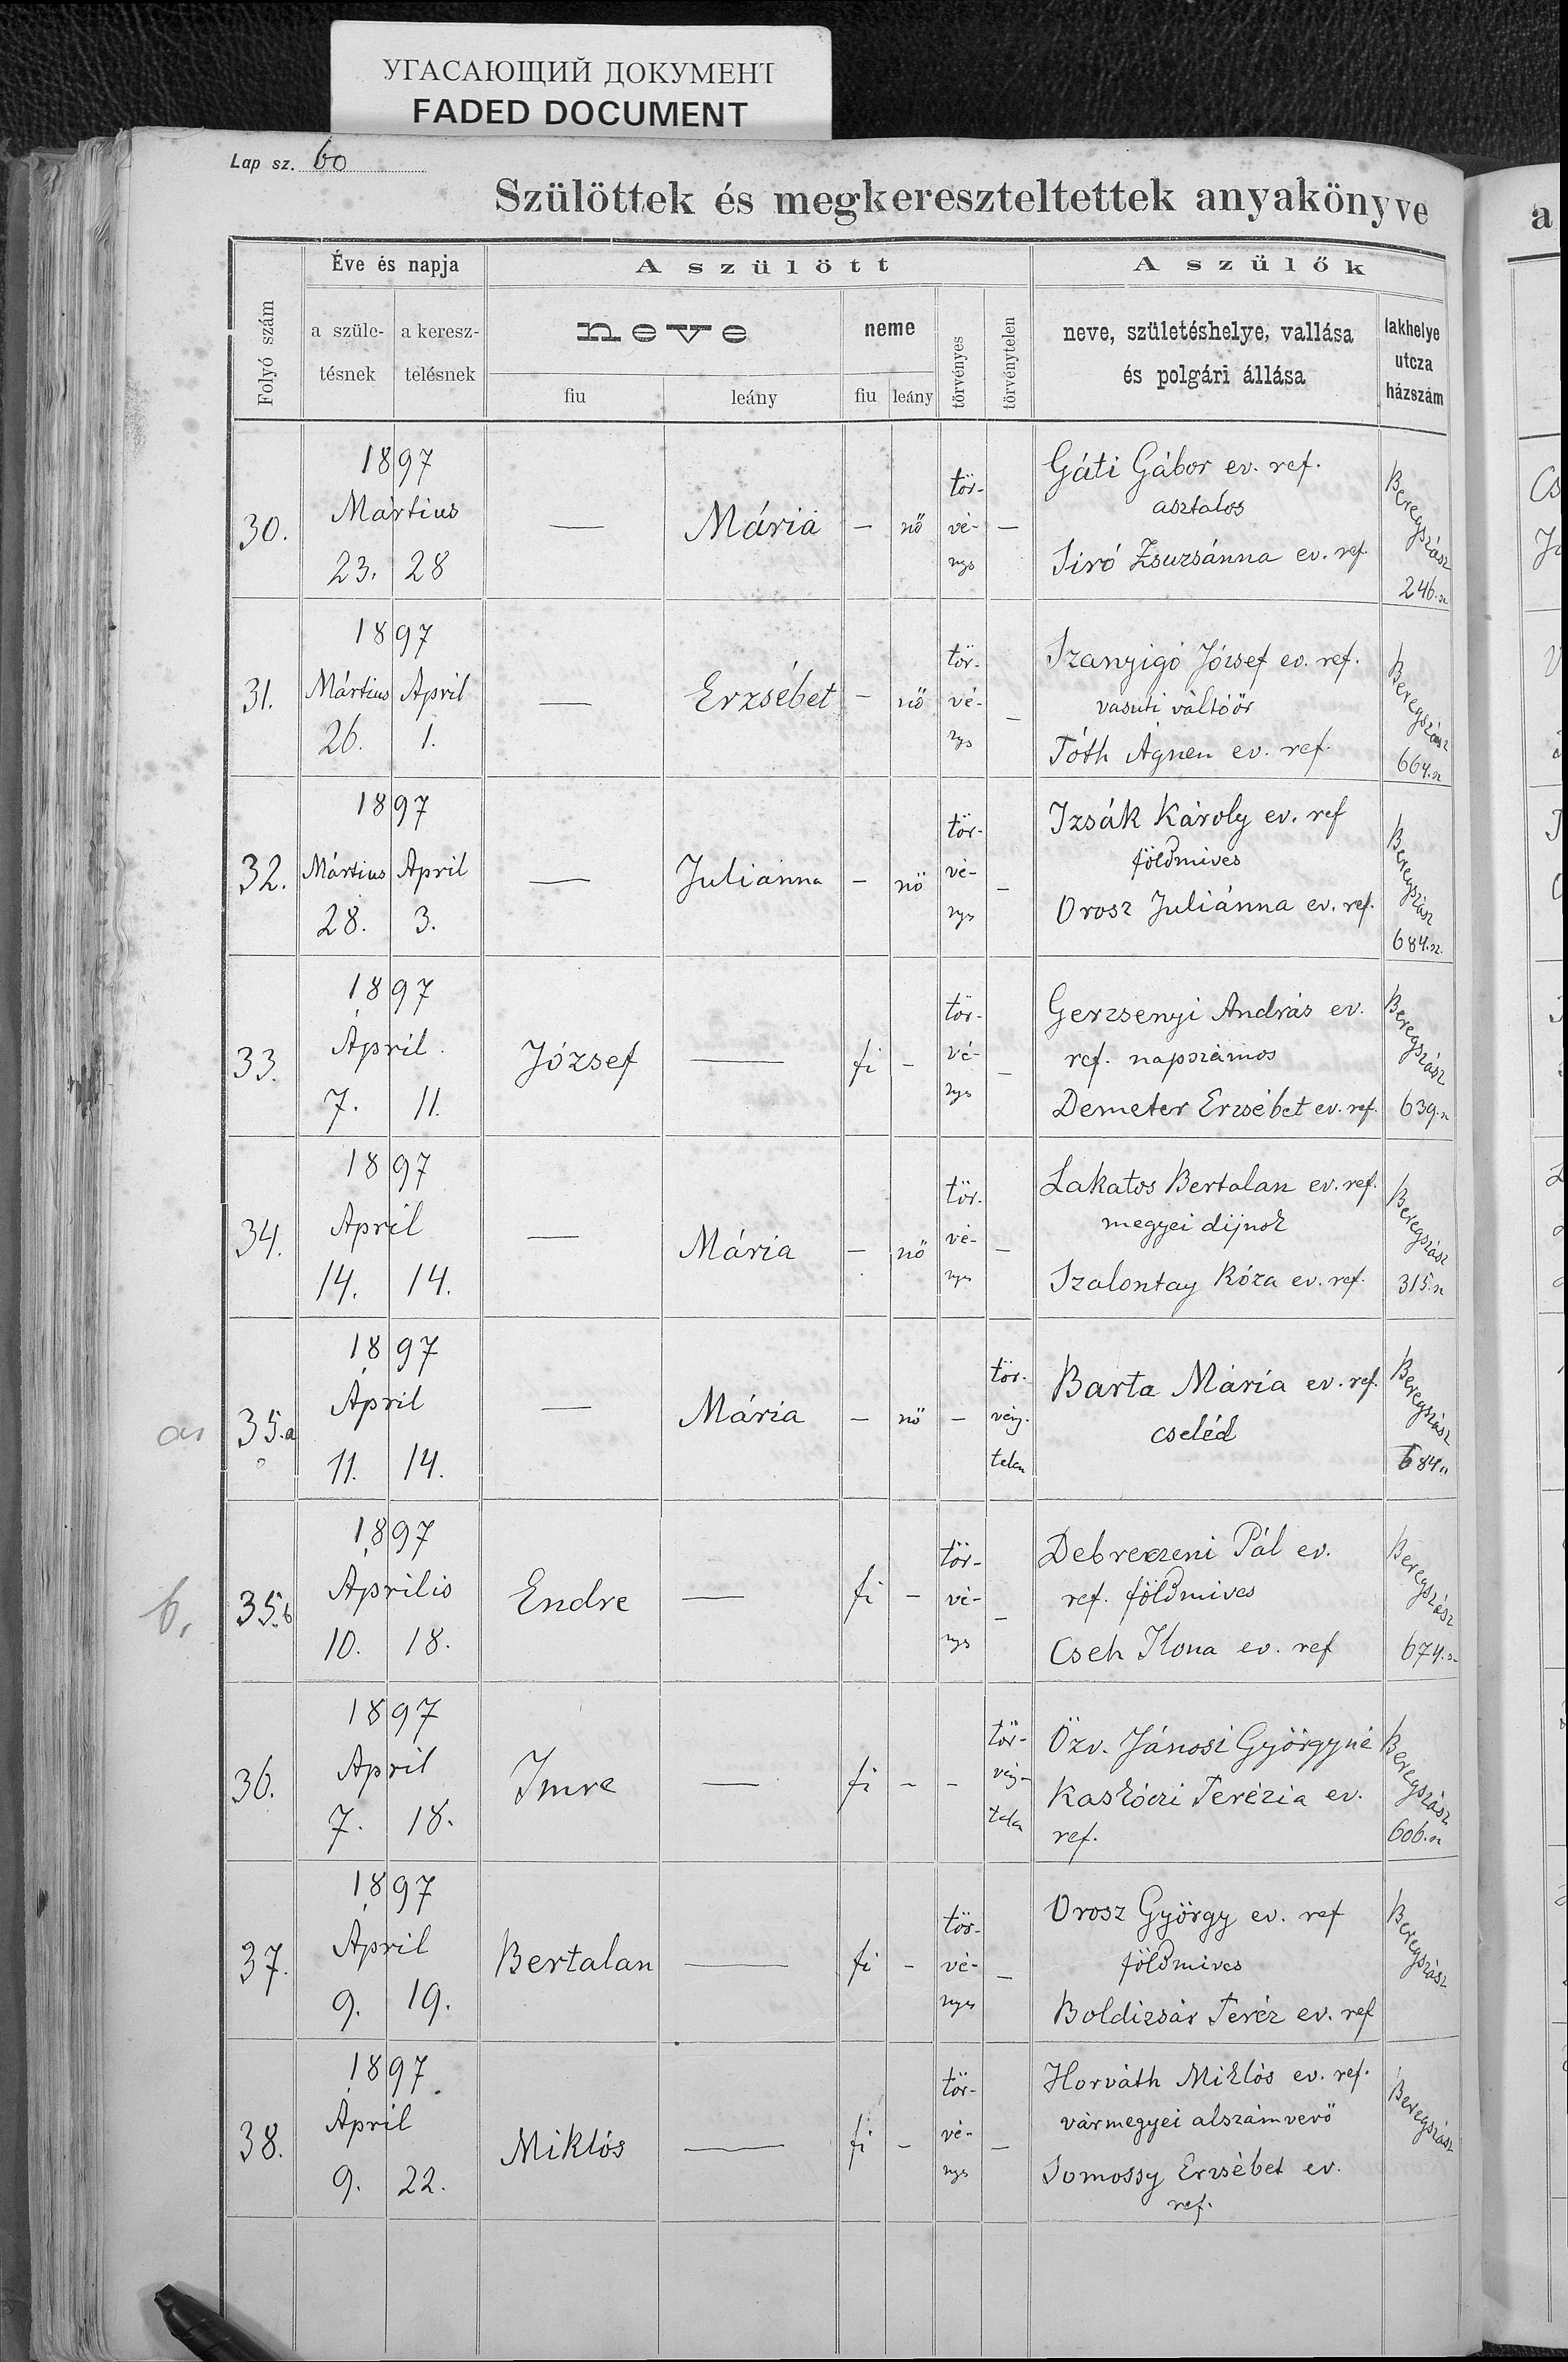 УГАСАЮЩИЙ ДОКУМЕНТ
FADED DOCUMENT
Lap sz. 60
Szülöttek és megkereszteltettek anyakönyve
Folyó szám
Éve és napja
a szüle-
tésnek
a keresz-
telésnek
A szülött
neve
fiu
leány
neme
fiu
leány
törvényes
törvénytelen
A szülők
neve, születéshelye, vallása
és polgári állása
lakhelye
utcza
házszám
30.
1897
Mártius
23. 28
—
Mária
— nő
tör-
vé-
nys
—
Gáti Gábor ev. ref.
asztalos
Siró Zsuzsánna ev. ref.
Beregszász
246.sz
31.
1897
Mártius April
26. 1.
—
Erzsébet
— nő
tör-
vé-
nys
—
Szanyigó József ev. ref.
vasuti váltóőr
Tóth Ágnen ev. ref.
Beregszász
664.sz
32.
1897
Mártius April
28. 3.
—
Juliánna
— nő
tör-
vé-
nys
—
Izsák Károly ev. ref
földmives
Orosz Juliánna ev. ref.
Beregszász
684.sz.
33.
1897
April.
7. 11.
József
—
fi —
tör-
vé-
nys
—
Gerzsenyi András ev.
ref. napszámos
Demeter Erzsébet ev. ref.
Beregszász
639.sz
34.
1897
April
14. 14.
—
Mária
— nő
tör-
vé-
nyes
—
Lakatos Bertalan ev. ref.
megyei dijnok
Szalontay Róza ev. ref.
Beregszász
315.sz
35.a
1897
April
11. 14.
—
Mária
— nő —
tör-
vény-
telen
Barta Mária ev. ref.
cseléd
Beregszász
684.sz
b.
35.b
1897
Aprilis
10. 18.
Endre
—
fi —
tör-
vé-
nys
—
Debreczeni Pál ev.
ref. földmives
Cseh Ilona ev. ref
Beregszász
674.sz
36.
1897
April
7. 18.
Imre
—
fi — —
tör-
vény-
telen
Özv. Jánosi Györgyné
Kaszóczi Terézia ev.
ref.
Beregszász
606.sz
37.
1897
April
9. 19.
Bertalan
—
fi —
tör-
vé-
nyes
—
Orosz György ev. ref
földmives
Boldizsár Teréz ev. ref
Beregszász
38.
1897.
April
9. 22.
Miklós
—
fi —
tör-
vé-
nys
—
Horváth Miklós ev. ref.
vármegyei alszámverő
Somossy Erzsébet ev.
ref.
Beregszász